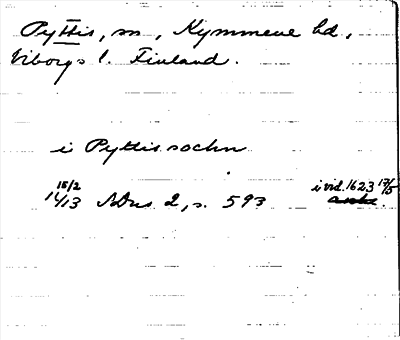 Pyttis, sn, Kymmene hd,
Viborgs l. Finland.
i Pyttis sochn
15/2 1413 Abus 2, s. 593 i vid. 1623 17/5.